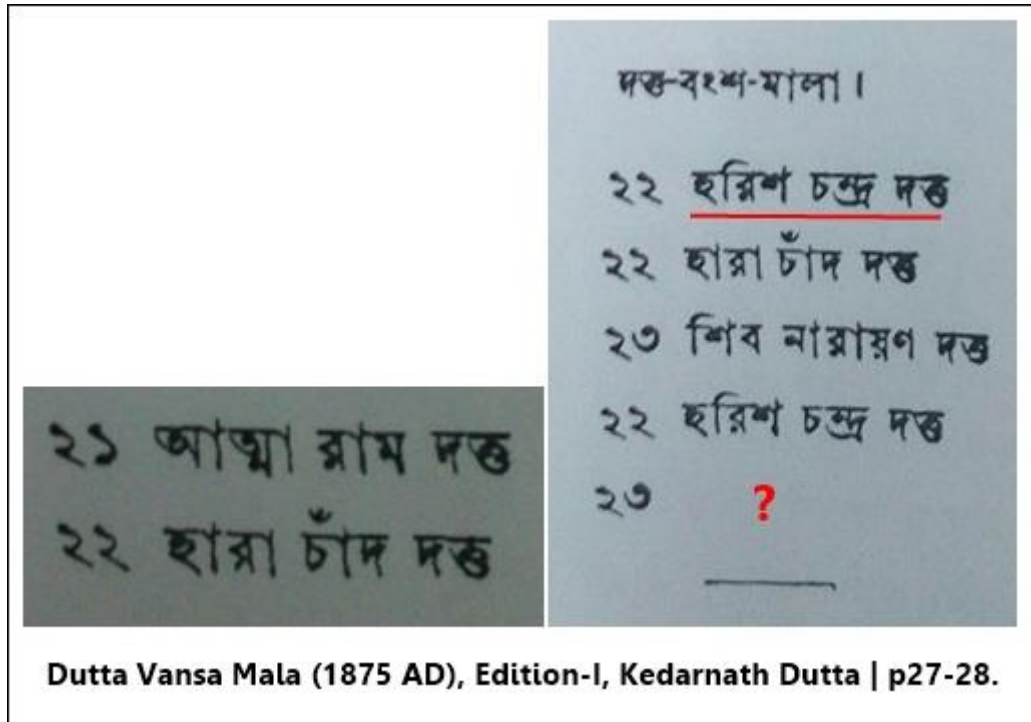 ২১ আত্মা রাম দত্ত
২২ হারা চাঁদ দত্ত
দত্ত-বংশ-মালা।
২২ হরিশ চন্দ্র দত্ত
২২ হারা চাঁদ দত্ত
২৩ শিব নারায়ণ দত্ত
২২ হরিশ চন্দ্র দত্ত
২৩ ?
Dutta Vansa Mala (1875 AD), Edition-I, Kedarnath Dutta | p27-28.